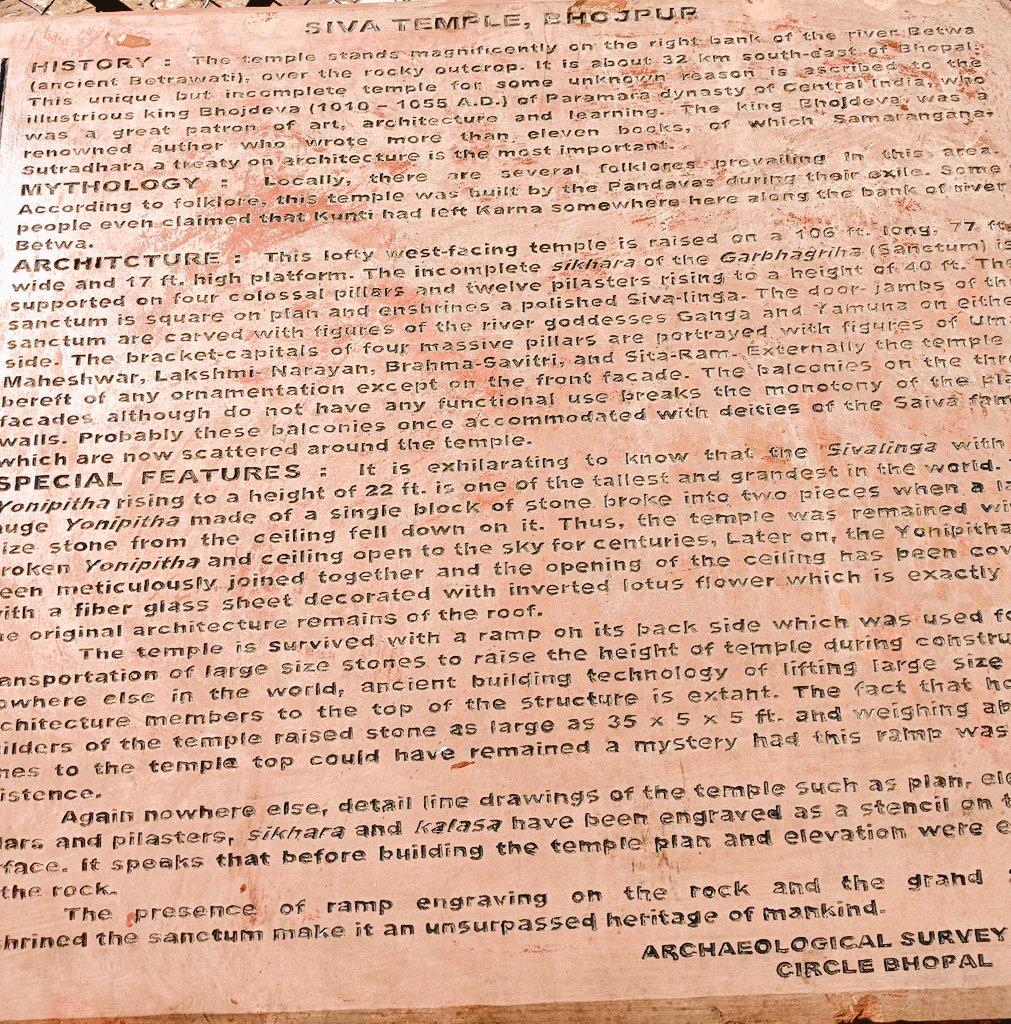 SIVA TEMPLE, BHOJPUR
HISTORY : The temple stands magnificently on the right bank of the river Betwa
(ancient Betrawati), over the rocky outcrop. It is about 32 km south-east of Bhopal.
This unique but incomplete temple for some unknown reason is ascribed to the
illustrious king Bhojdeva (1010 – 1055 A.D.) of Paramara dynasty of Central India, who
was a great patron of art, architecture and learning. The king Bhojdeva was a
renowned author who wrote more than eleven books, of which Samarangana-
Sutradhara a treaty on architecture is the most important.
MYTHOLOGY : Locally, there are several folklores prevailing in this area.
According to folklore, this temple was built by the Pandavas during their exile. Some
people even claimed that Kunti had left Karna somewhere here along the bank of river
Betwa.
ARCHITCTURE : This lofty west-facing temple is raised on a 106 ft. long, 77 ft.
wide and 17 ft. high platform. The incomplete sikhara of the Garbhagriha (Sanctum) is
supported on four colossal pillars and twelve pilasters rising to a height of 40 ft. The
sanctum is square on plan and enshrines a polished Siva-linga. The door- jambs of the
sanctum are carved with figures of the river goddesses Ganga and Yamuna on eithe
side. The bracket-capitals of four massive pillars are portrayed with figures of Um
Maheshwar, Lakshmi- Narayan, Brahma-Savitri, and Sita-Ram. Externally the temple
bereft of any ornamentation except on the front facade. The balconies on the thr
facades although do not have any functional use breaks the monotony of the pla
walls. Probably these balconies once accommodated with deities of the Saiva fam
which are now scattered around the temple.
SPECIAL FEATURES : It is exhilarating to know that the Sivalinga with
Yonipitha rising to a height of 22 ft. is one of the tallest and grandest in the world.
huge Yonipitha made of a single block of stone broke into two pieces when a la
size stone from the ceiling fell down on it. Thus, the temple was remained wi
roken Yonipitha and ceiling open to the sky for centuries, Later on, the Yonipitha
een meticulously joined together and the opening of the ceiling has been cov
ith a fiber glass sheet decorated with inverted lotus flower which is exactly
he original architecture remains of the roof.
The temple is survived with a ramp on its back side which was used fo
ansportation of large size stones to raise the height of temple during constru
owhere else in the world, ancient building technology of lifting large size
chitecture members to the top of the structure is extant. The fact that ho
ilders of the temple raised stone as large as 35 x 5 x 5 ft. and weighing ab
nes to the temple top could have remained a mystery had this ramp was
istence.
Again nowhere else, detail line drawings of the temple such as plan, ele
lars and pilasters, sikhara and kalasa have been engraved as a stencil on t
rface. It speaks that before building the temple plan and elevation were e
the rock.
The presence of ramp engraving on the rock and the grand
shrined the sanctum make it an unsurpassed heritage of mankind.
ARCHAEOLOGICAL SURVEY
CIRCLE BHOPAL